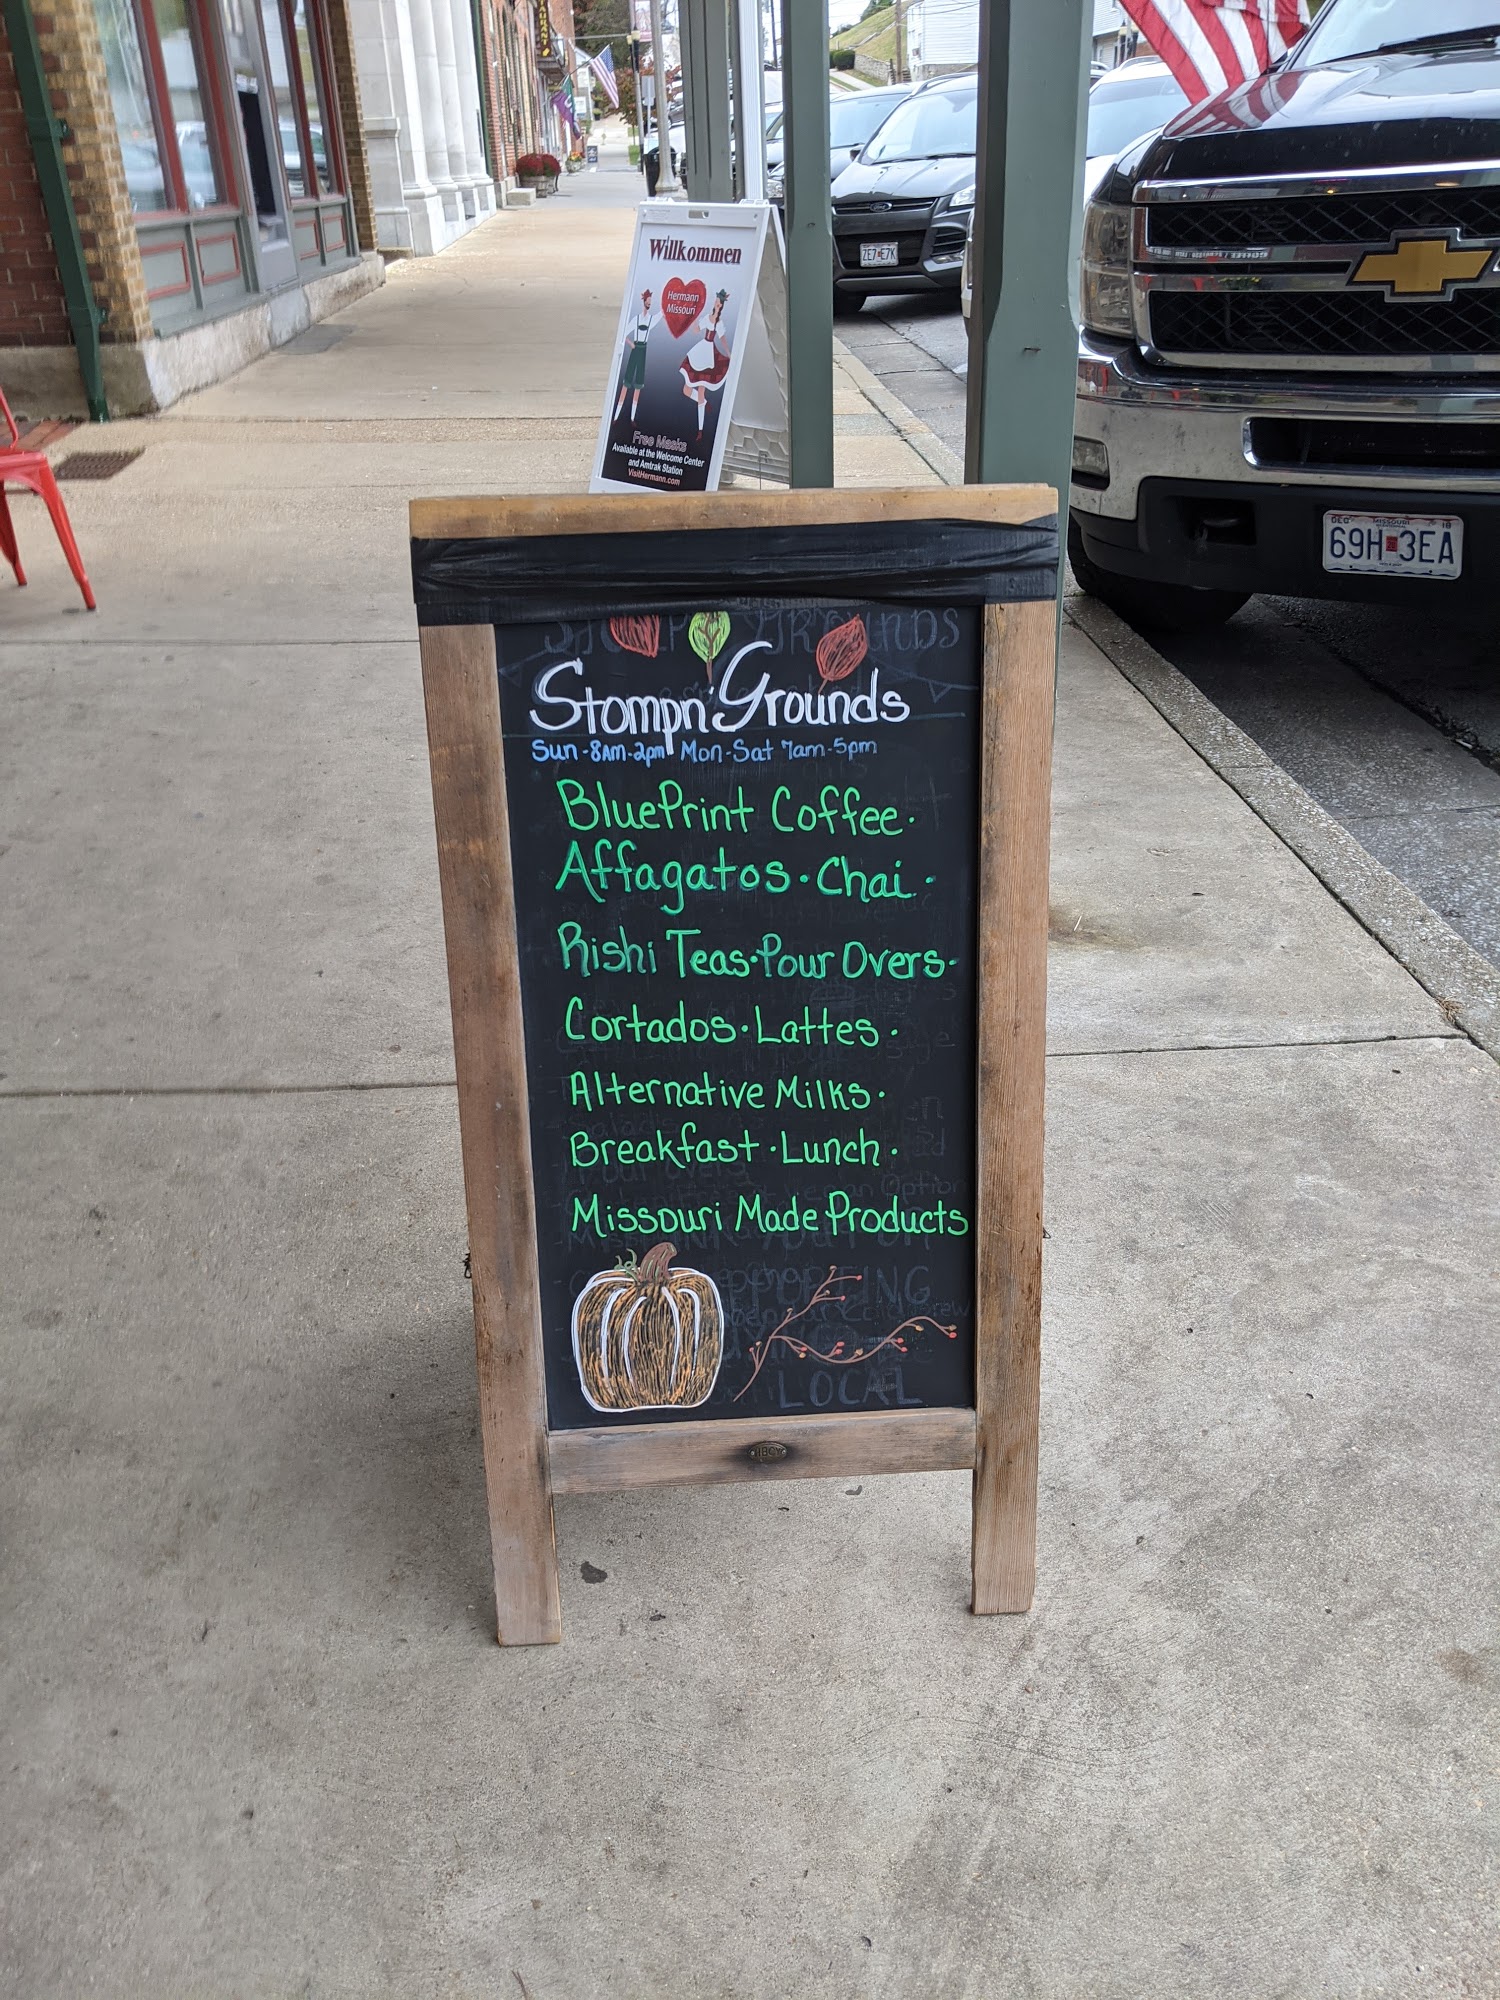 Willkommen
Hermann
Missouri
Free Masks
Available at the Welcome Center
and Amtrak Station
VisitHermann.com
ZE7 E7K
69H 3EA
MISSOURI
DEC
GROUNDS
Stompn' Grounds
Sun - 8AM - 2pm Mon - Sat 7am - 5pm
BluePrint Coffee ·
Affagatos · Chai ·
Rishi Teas · Pour Overs ·
Cortados · Lattes ·
Alternative Milks ·
Breakfast · Lunch ·
Missouri Made Products
LOCAL